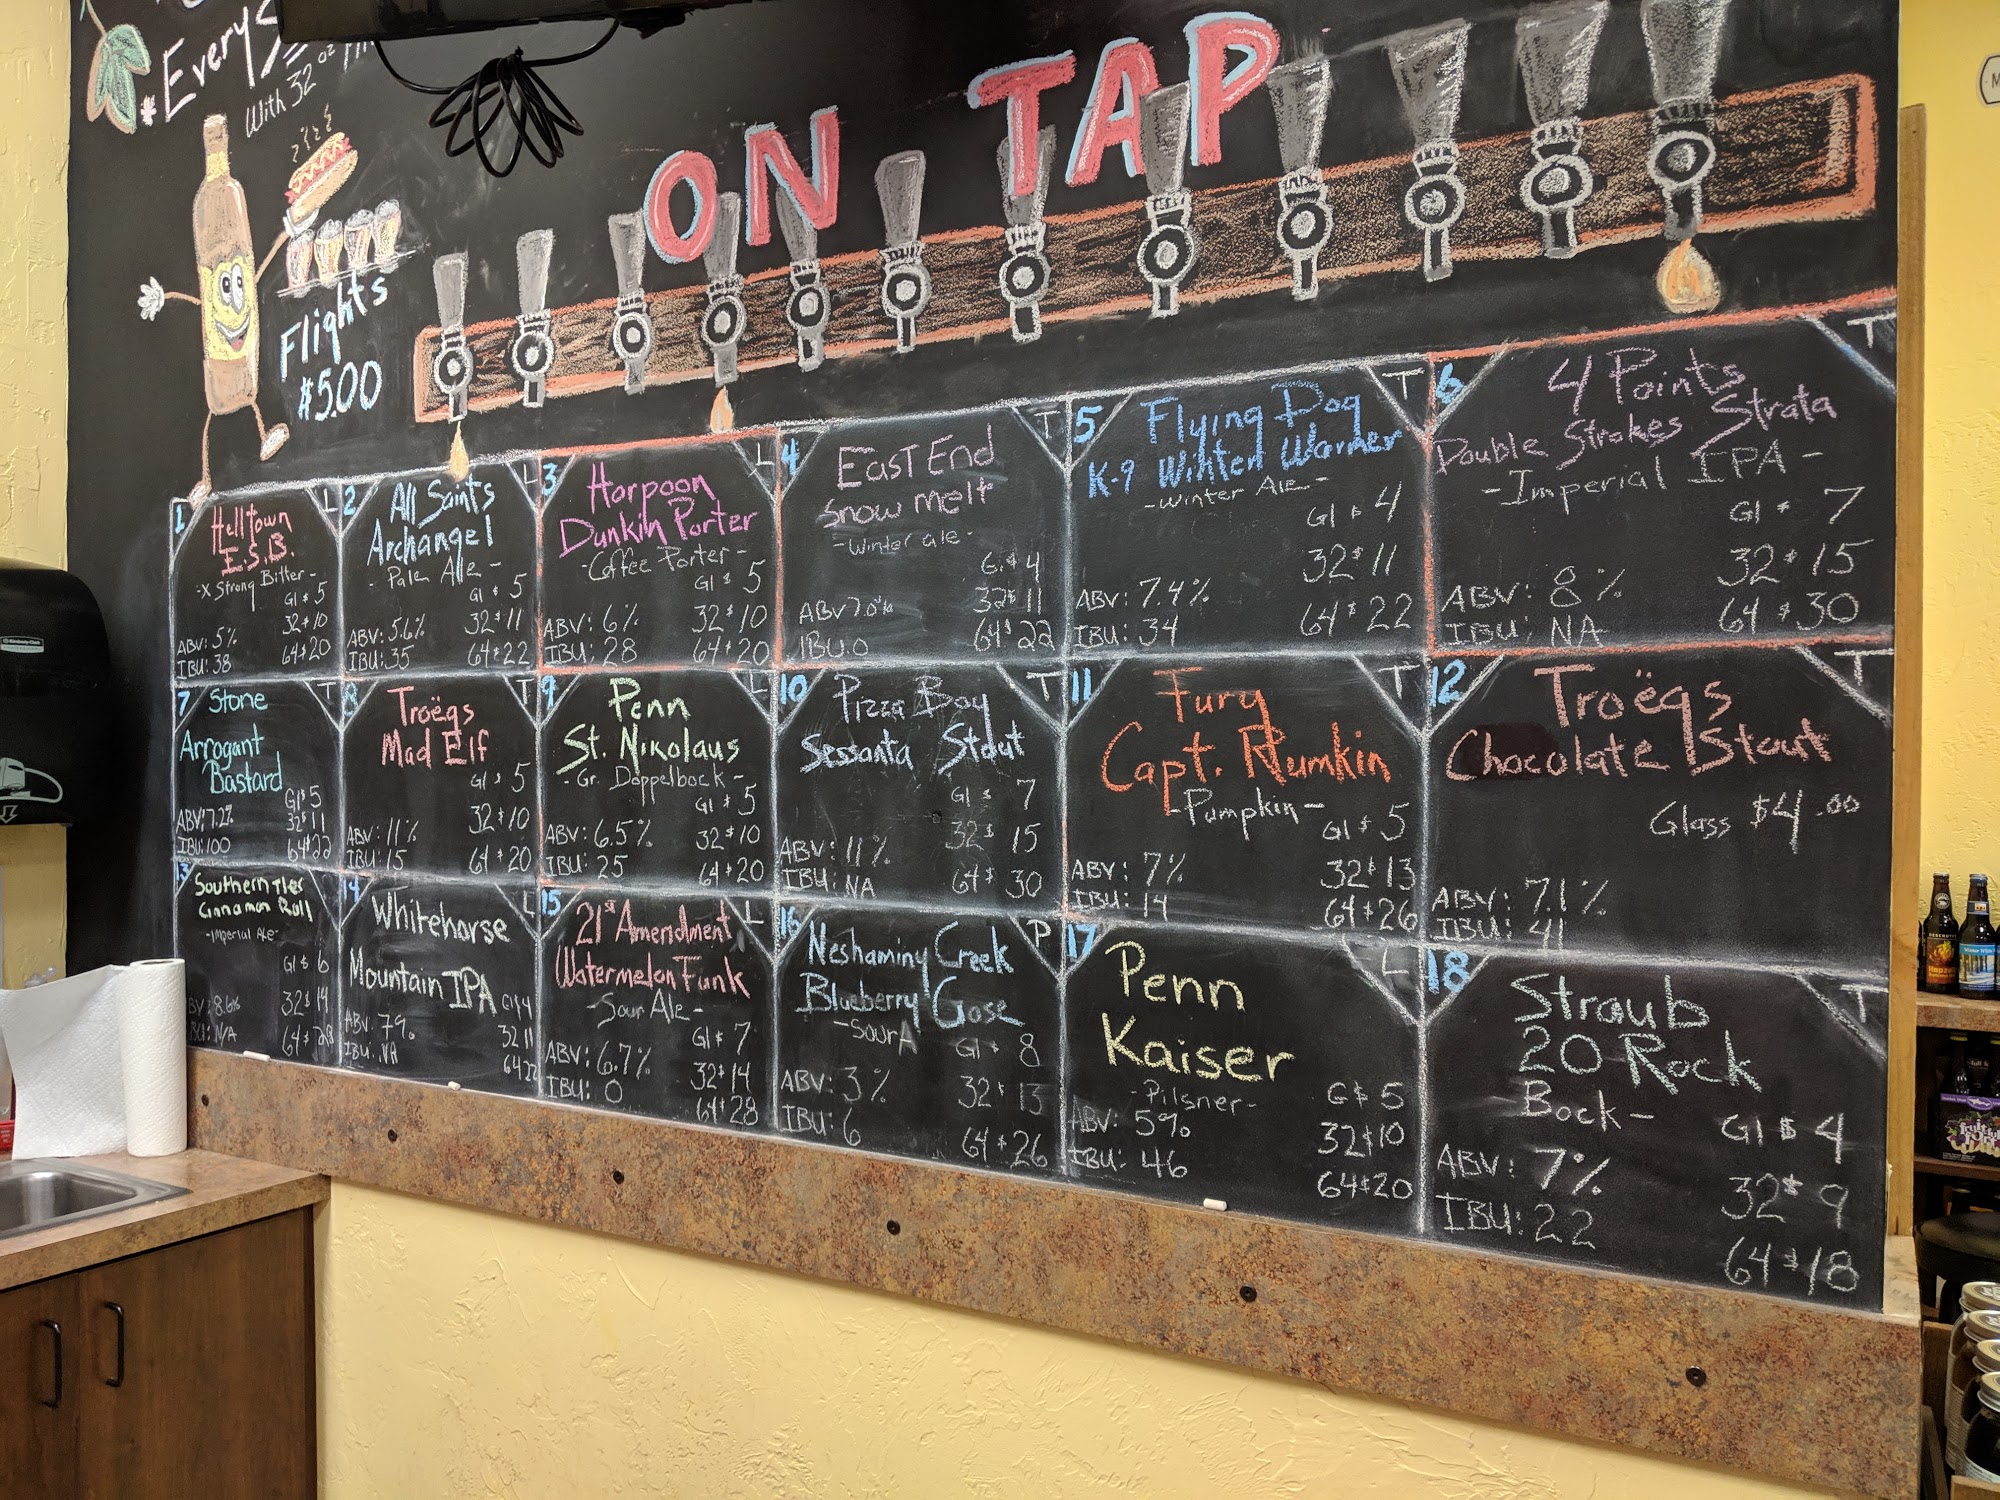 *Every S
With 32 oz
ON TAP
Flights
$5.00
1
L
Helltown
E.S.B.
-X Strong Bitter-
Gl $ 5
32 $ 10
64 $ 20
ABV: 5%
IBU: 38
2
L
All Saints
Archangel
- Pale Ale -
Gl $ 5
32 $ 11
64 $ 22
ABV: 5.6%
IBU: 35
3
L
Harpoon
Dunkin Porter
-Coffee Porter-
Gl $ 5
32 $ 10
64 $ 20
ABV: 6%
IBU: 28
4
T
East End
Snow melt
-Winter ale-
G. $ 4
32 $ 11
64 $ 22
ABV 7.0%
IBU.0
5
T
Flying Dog
K-9 Winter Warmer
-Winter Ale-
Gl $ 4
32 $ 11
64 $ 22
ABV: 7.4%
IBU: 34
6
T
4 Points
Double Strokes Strata
-Imperial IPA-
Gl $ 7
32 $ 15
64 $ 30
ABV: 8%
IBU: NA
7
T
Stone
Arrogant
Bastard
Gl $ 5
32 $ 11
64 $ 22
ABV: 7.2%
IBU: 100
8
T
Troëgs
Mad Elf
Gl $ 5
32 $ 10
64 $ 20
ABV: 11%
IBU: 15
9
L
Penn
St. Nikolaus
-Gr. Doppelbock-
Gl $ 5
32 $ 10
64 $ 20
ABV: 6.5%
IBU: 25
10
T
Pizza Boy
Sessanta Stout
Gl $ 7
32 $ 15
64 $ 30
ABV: 11%
IBU: NA
11
T
Fury
Capt. Rumkin
-Pumpkin-
Gl $ 5
32 $ 13
64 $ 26
ABV: 7%
IBU: 14
12
T
Troëgs
Chocolate Stout
Glass $4.00
ABV: 7.1%
IBU: 41
13
Southern Tier
Cinnamon Roll
-Imperial Ale-
Gl $ 6
32 $ 14
64 $ 28
ABV: 8.6%
IBU: N/A
14
L
Whitehorse
Mountain IPA
Gl 4
32 11
64 22
ABV 7%
IBU: NA
15
L
21st Amendment
Watermelon Funk
-Sour Ale-
Gl $ 7
32 $ 14
64 $ 28
ABV: 6.7%
IBU: 0
16
P
Neshaminy Creek
Blueberry Gose
-Sour A
Gl $ 8
32 $ 13
64 $ 26
ABV: 3%
IBU: 6
17
L
Penn
Kaiser
-Pilsner-
G $ 5
32 $ 10
64 $ 20
ABV: 5%
IBU: 46
18
T
Straub
20 Rock
Bock-
Gl $ 4
32 $ 9
64 $ 18
ABV: 7%
IBU: 22